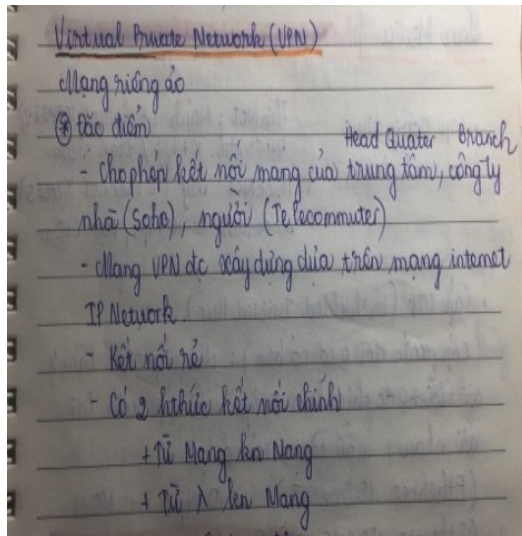 Virtual Private Network (VPN)
Mạng riêng ảo
* Đặc điểm
Head Quater Branch
- Cho phép kết nối mạng của trung tâm, công ty
nhà (Soho), người (Telecommuter)
- Mạng VPN đc xây dựng dựa trên mạng internet
IP Network.
- Kết nối rẻ
- Có 2 hthức kết nối chính
+ Từ Mạng lên Mạng
+ Từ λ lên Mạng